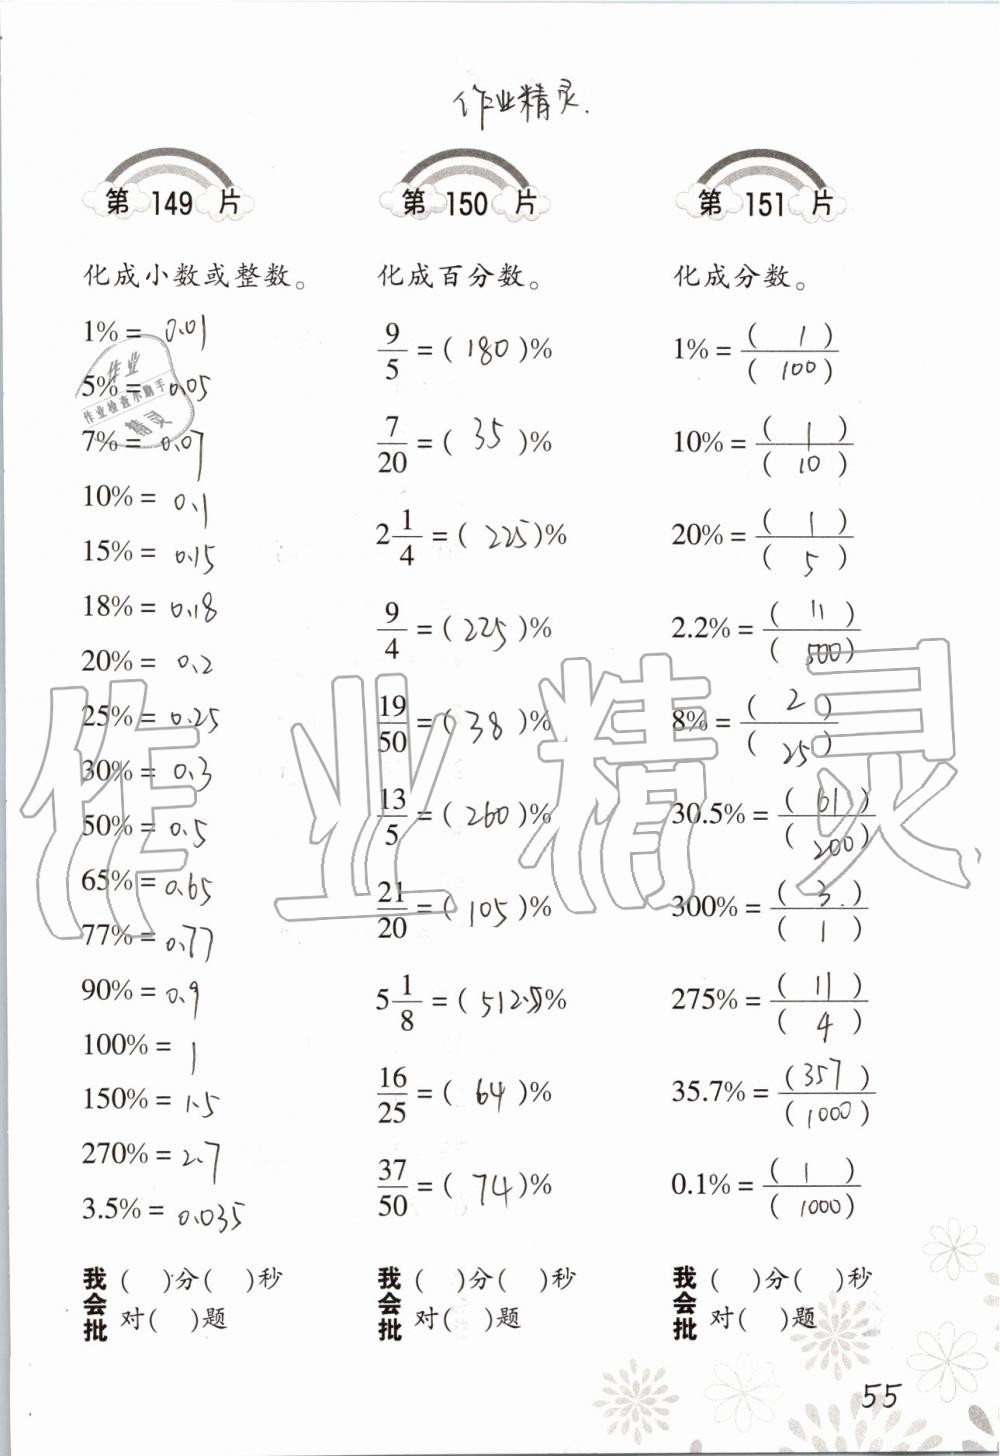 作业精灵.
第 149 片
化成小数或整数。
1% = 0.01
5% = 0.05
7% = 0.07
10% = 0.1
15% = 0.15
18% = 0.18
20% = 0.2
25% = 0.25
30% = 0.3
50% = 0.5
65% = 0.65
77% = 0.77
90% = 0.9
100% = 1
150% = 1.5
270% = 2.7
3.5% = 0.035
我会批 ( )分( )秒
对( )题
第 150 片
化成百分数。
9/5 = ( 180 )%
7/20 = ( 35 )%
2 1/4 = ( 225 )%
9/4 = ( 225 )%
19/50 = ( 38 )%
13/5 = ( 260 )%
21/20 = ( 105 )%
5 1/8 = ( 512.5 )%
16/25 = ( 64 )%
37/50 = ( 74 )%
我会批 ( )分( )秒
对( )题
第 151 片
化成分数。
1% = ( 1 )/( 100 )
10% = ( 1 )/( 10 )
20% = ( 1 )/( 5 )
2.2% = ( 11 )/( 500 )
8% = ( 2 )/( 25 )
30.5% = ( 61 )/( 200 )
300% = ( 3 )/( 1 )
275% = ( 11 )/( 4 )
35.7% = ( 357 )/( 1000 )
0.1% = ( 1 )/( 1000 )
我会批 ( )分( )秒
对( )题
55
作业
作业检查小助手
精灵
作业精灵